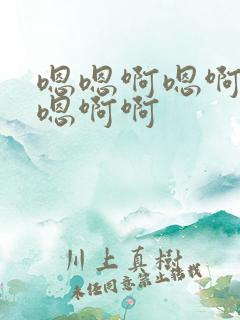 嗯嗯啊嗯啊
嗯啊啊
川上真樹
未经同意禁止转载